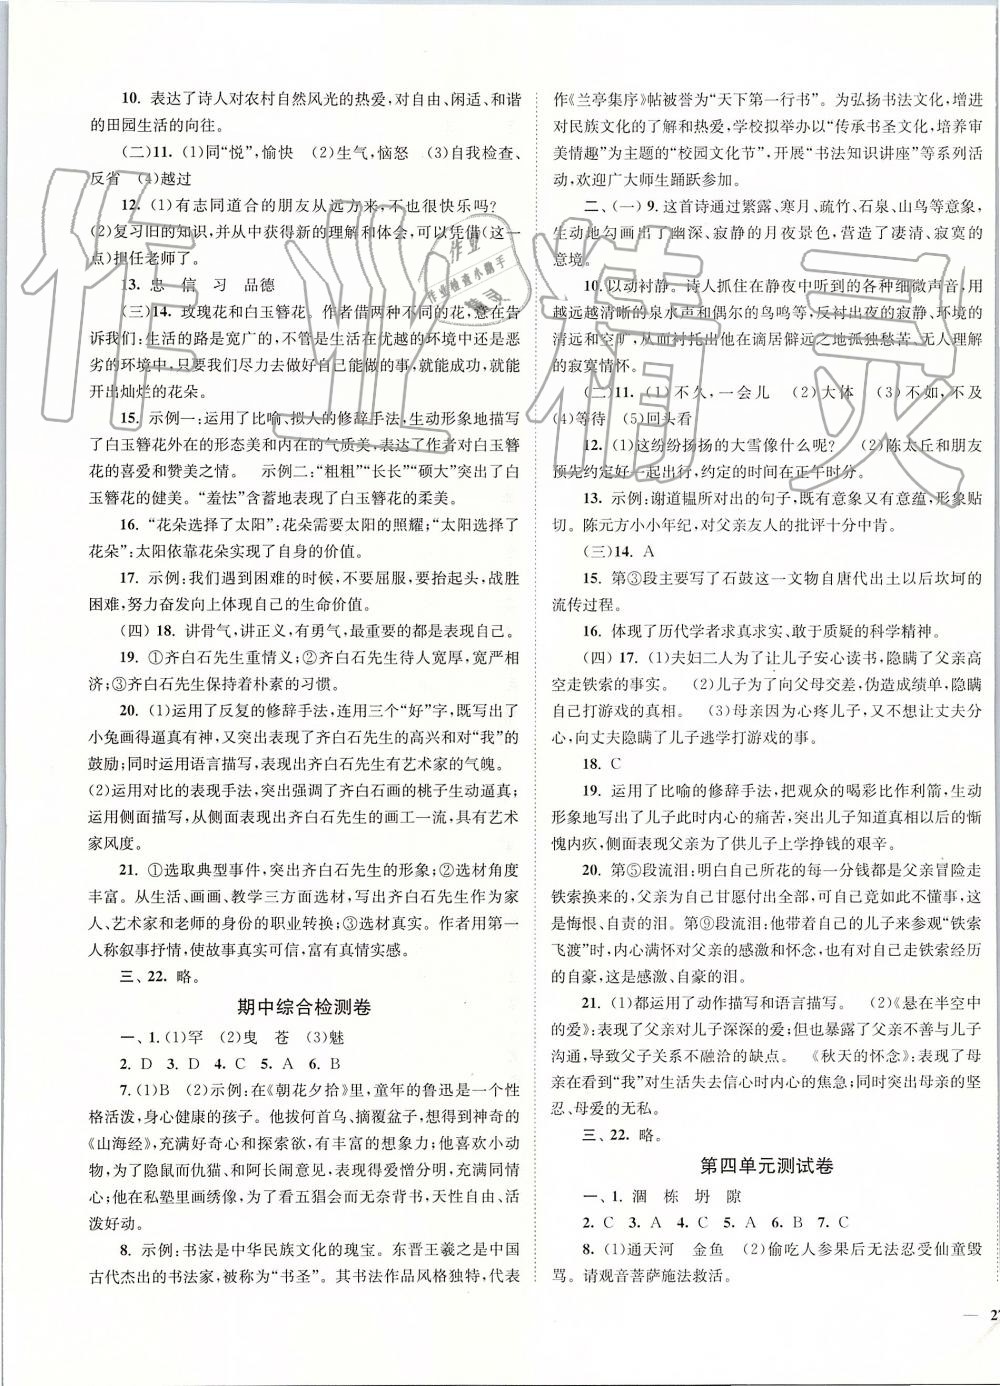 10. 表达了诗人对农村自然风光的热爱,对自由、闲适、和谐
的田园生活的向往。
(二)11. (1)同“悦”,愉快　(2)生气,恼怒　(3)自我检查、
反省　(4)越过
12. (1)有志同道合的朋友从远方来,不也很快乐吗?
(2)复习旧的知识,并从中获得新的理解和体会,可以凭借(这一
点)担任老师了。
13. 忠　信　习　品德
(三)14. 玫瑰花和白玉簪花。作者借两种不同的花,意在告
诉我们:生活的路是宽广的,不管是生活在优越的环境中还是恶
劣的环境中,只要我们尽力去做好自己能做的事,就能成功,就能
开出灿烂的花朵。
15. 示例一:运用了比喻、拟人的修辞手法,生动形象地描写
了白玉簪花外在的形态美和内在的气质美,表达了作者对白玉簪
花的喜爱和赞美之情。　示例二:“粗粗”“长长”“硕大”突出了白
玉簪花的健美。“羞怯”含蓄地表现了白玉簪花的柔美。
16. “花朵选择了太阳”:花朵需要太阳的照耀;“太阳选择了
花朵”:太阳依靠花朵实现了自身的价值。
17. 示例:我们遇到困难的时候,不要屈服,要抬起头,战胜
困难,努力奋发向上体现自己的生命价值。
(四) 18. 讲骨气,讲正义,有勇气,最重要的都是表现自己。
19. ①齐白石先生重情义;②齐白石先生待人宽厚,宽严相
济;③齐白石先生保持着朴素的习惯。
20. (1)运用了反复的修辞手法,连用三个“好”字,既写出了
小兔画得逼真有神,又突出表现了齐白石先生的高兴和对“我”的
鼓励;同时运用语言描写,表现出齐白石先生有艺术家的气魄。
(2)运用对比的表现手法,突出强调了齐白石画的桃子生动逼真;
运用侧面描写,表现出齐白石先生的画工一流,具有艺术
家风度。
21. ①选取典型事件,突出齐白石先生的形象;②选材角度
丰富。从生活、画画、教学三方面选材,写出齐白石先生作为家
人、艺术家和老师的身份的职业转换;③选材真实。作者用第一
人称叙事抒情,使故事真实可信,富有真情实感。
三、22. 略。
期中综合检测卷
一、1. (1)罕　(2)曳　苍　(3)魅
2. D　3. D　4. C　5. A　6. B
7. (1)B　(2)示例:在《朝花夕拾》里,童年的鲁迅是一个性
格活泼,身心健康的孩子。他拔何首乌、摘覆盆子,想得到神奇的
《山海经》,充满好奇心和探索欲,有丰富的想象力;他喜欢小动
物,为了隐鼠而仇猫、和阿长闹意见,表现得爱憎分明,充满同情
心;他在私塾里画绣像,为了看五猖会而无奈背书,天性自由、活
泼好动。
8. 示例:书法是中华民族文化的瑰宝。东晋王羲之是中国
古代杰出的书法家,被称为“书圣”。其书法作品风格独特,代表
作《兰亭集序》帖被誉为“天下第一行书”。为弘扬书法文化,增进
对民族文化的了解和热爱,学校拟举办以“传承书圣文化,培养审
美情趣”为主题的“校园文化节”,开展“书法知识讲座”等系列活
动,欢迎广大师生踊跃参加。
二、(一) 9. 这首诗通过繁露、寒月、疏竹、石泉、山鸟等意象,
生动地勾画出了幽深、寂静的月夜景色,营造了凄清、寂寞的
意境。
10. 以动衬静。诗人抓住在静夜中听到的各种细微声音,用
越远越清晰的泉水声和偶尔的鸟鸣等,反衬出夜的寂静、环境的
清远和空旷,从而衬托出他在谪居僻远之地孤独愁苦、无人理解
的寂寞情怀。
(二)11. (1)不久,一会儿　(2)大体　(3)不如,不及
(4)等待　(5)回头看
12. (1)这纷纷扬扬的大雪像什么呢?　(2)陈太丘和朋友
预先约定好一起出行,约定的时间在正午时分。
13. 示例:谢道韫所对出的句子,既有意象又有意蕴,形象贴
切。陈元方小小年纪,对父亲友人的批评十分中肯。
(三)14. A
15. 第③段主要写了石鼓这一文物自唐代出土以后坎坷的
流传过程。
16. 体现了历代学者求真求实、敢于质疑的科学精神。
(四) 17. (1)夫妇二人为了让儿子安心读书,隐瞒了父亲高
空走铁索的事实。　(2)儿子为了向父母交差,伪造成绩单,隐瞒
自己打游戏的真相。　(3)母亲因为心疼儿子,又不想让丈夫分
心,向丈夫隐瞒了儿子逃学打游戏的事。
18. C
19. 运用了比喻的修辞手法,把观众的喝彩比作利箭,生动
形象地写出了儿子此时内心的痛苦,突出儿子知道真相以后的惭
愧内疚,侧面突出了父亲为供儿子上学挣钱的艰辛。
20. 第⑤段流泪:明白自己所花的每一分钱都是父亲冒险走
铁索换来的,父亲为自己甘愿付出全部,可自己竟如此不懂事,这
是悔恨、自责的泪。第⑨段流泪:他带着自己的儿子来参观“铁索
飞渡”时,内心满怀对父亲的感激和怀念,也有对父亲走铁索经历
的自豪,这是感激、自豪的泪。
21. (1)都运用了动作描写和语言描写。　(2)《悬在半空中
的爱》:表现了父亲对儿子深深的爱,但也暴露了父亲不善与儿子
沟通,导致父子关系不融洽的缺点。　《秋天的怀念》:表现了母
亲在看到“我”对生活失去信心时内心的焦急;同时突出母亲的坚
忍、母爱的无私。
三、22. 略。
第四单元测试卷
一、1. 涸　栋　坍　隙
2. C　3. A　4. C　5. A　6. B　7. C
8. (1)通天河　金鱼　(2)偷吃人参果后无法忍受仙童毁
骂。请观音菩萨施法救活。
— 27
作业精灵
作业
作业检查小助手
精灵